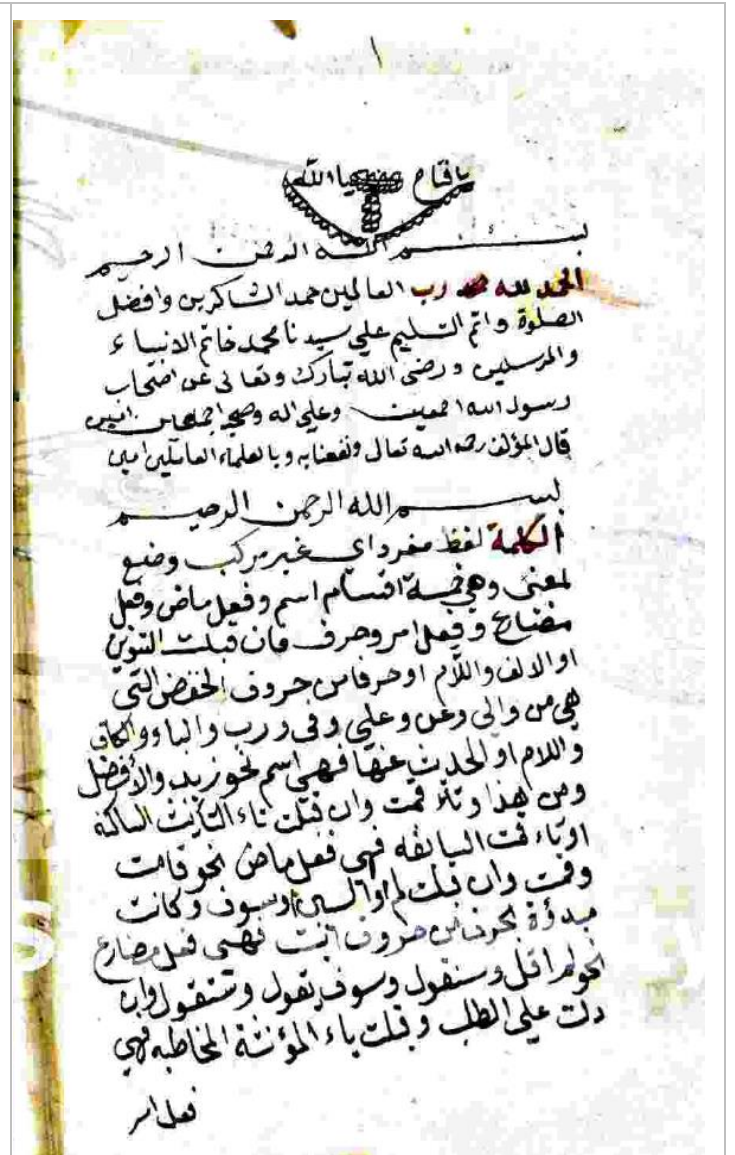 ١
يا فتاح يا الله
بسم الله الرحمن الرحيم
الحمد لله رب العالمين حمد الشاكرين وافضل
الصلوة واتم التسليم علي سيدنا محمد خاتم الانبياء
والمرسلين ورضي الله تبارك وتعالى عن اصحاب
رسول الله اجمعين وعلي اله وصحبه اجمعين امين
قال المؤلف رحمه الله تعال ونفعنا به وبالعلماء العاملين امين
بسم الله الرحمن الرحيم
الكلمة لفظ مفرد اي غير مركب وضع
لمعنى وهي خمسة اقسام اسم وفعل ماض وفعل
مضارع وفعل امر وحرف فان قبلت التنوين
او الالف واللام او حرفا من حروف الخفض التي
هي من والى وعن وعلي وفي ورب والباء والكاف
واللام او الحديث عنها فهي اسم نحو زيد والأفضل
ومن هذا وتاء قمت وان قبلت تاء التأنيث الساكنة
او تاء قمت السابقه فهي فعل ماض نحو قامت
وقمت وان قبلت لم او السين او سوف وكانت
مبدؤة بحرف من حروف انيت فهي فعل مضارع
نحو لم اقل وسنقول وسوف يقول وستقول وان
دلت علي الطلب وقبلت ياء المؤنثة المخاطبه فهي
فعل امر